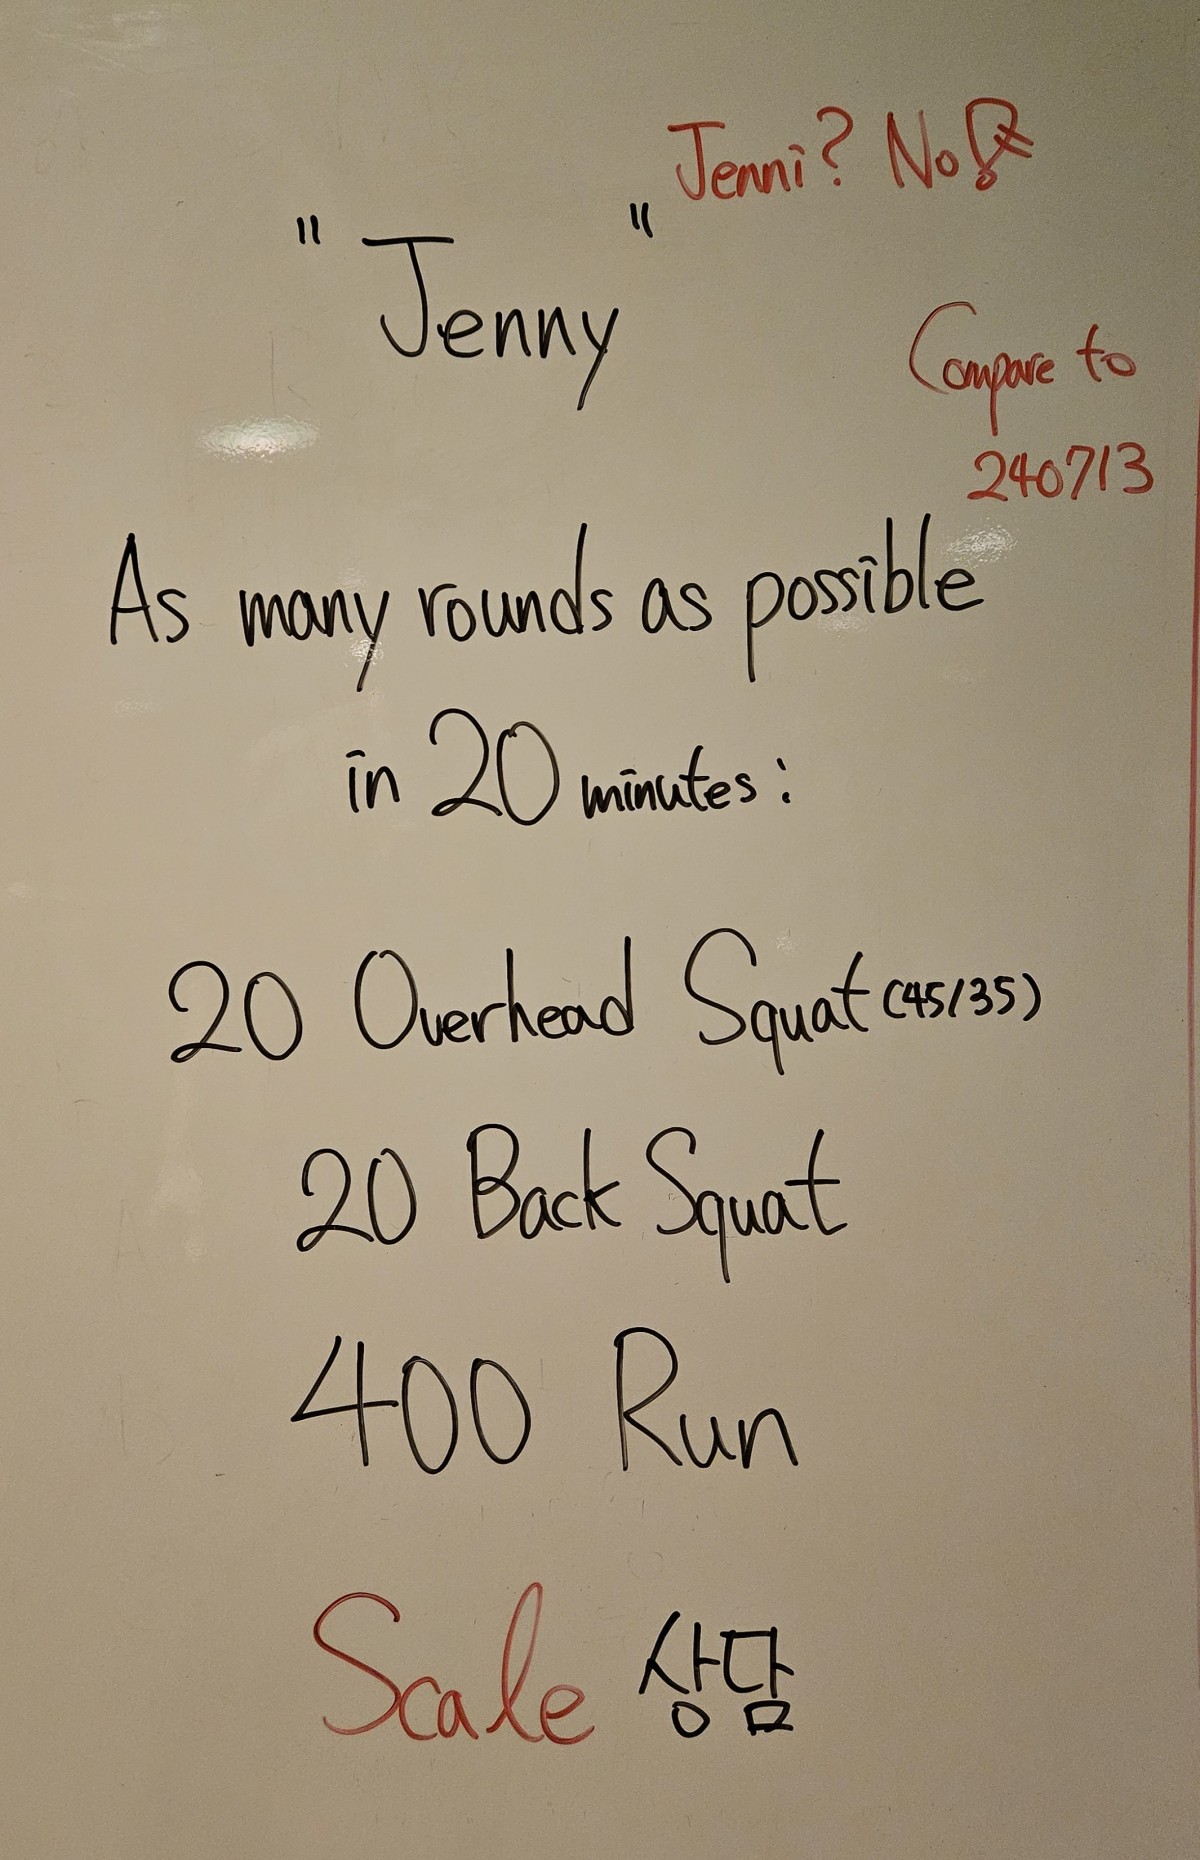 Jenni? No!
"Jenny"
Compare to
240713
As many rounds as possible
in 20 minutes:
20 Overhead Squat (45/35)
20 Back Squat
400 Run
Scale 상담